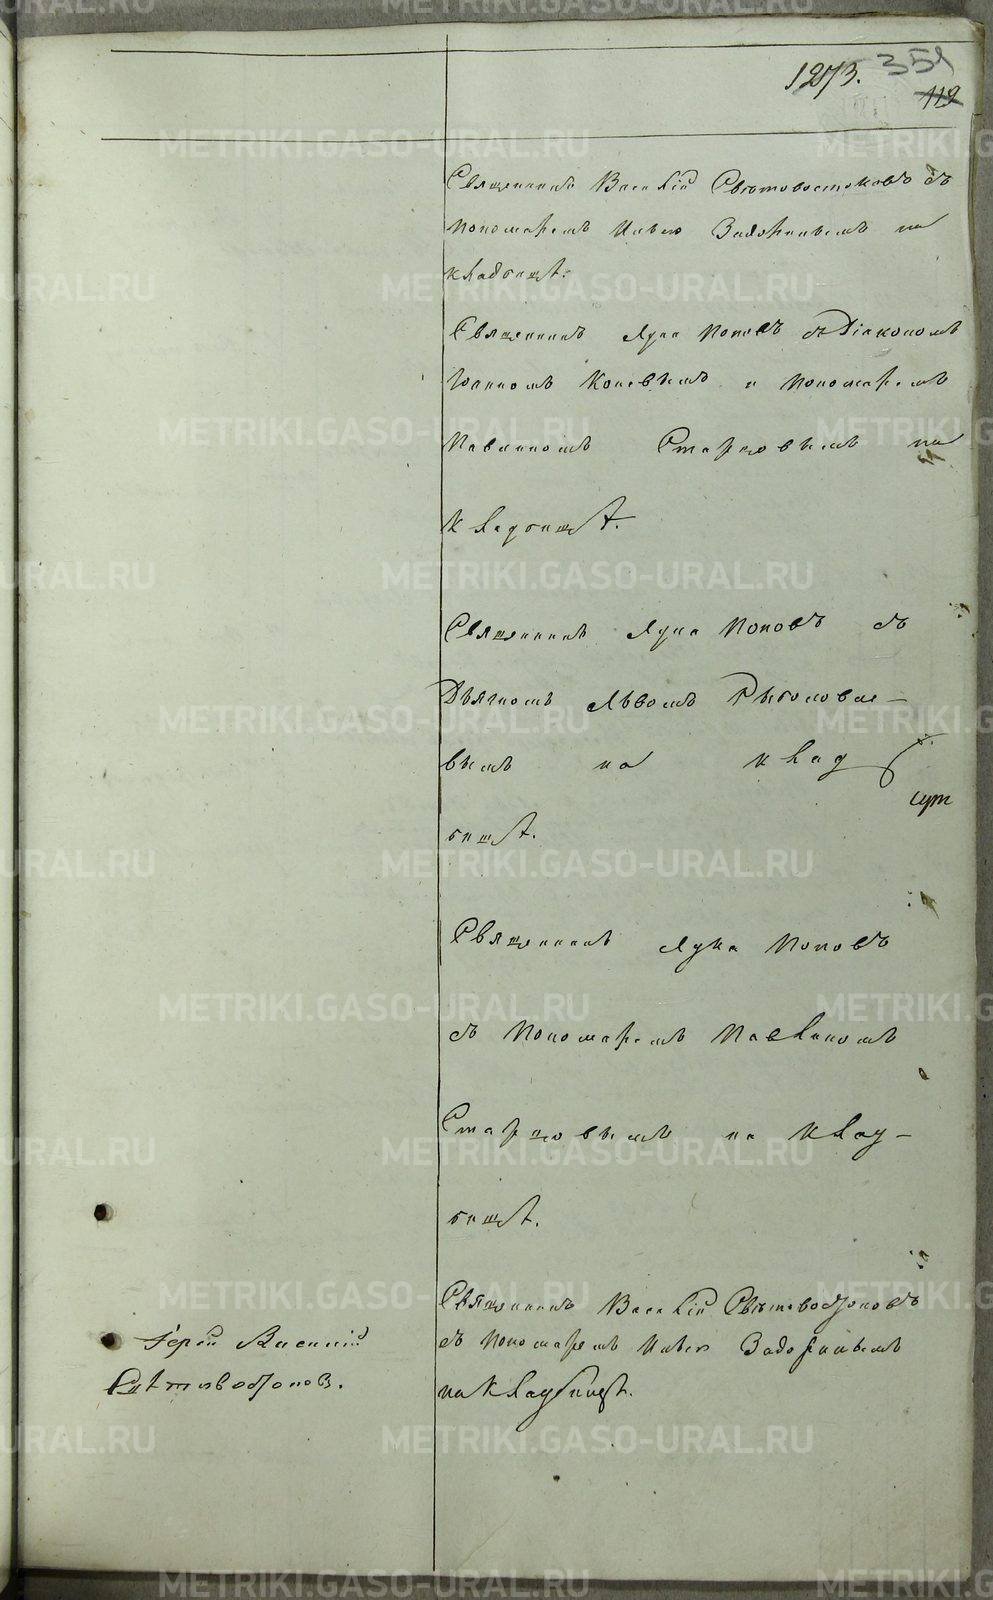 1273. 351
119
Священникъ Василій Свѣтовостоковъ съ
Пономаремъ Ильею Задоринымъ на
кладбищѣ.
Священникъ Лука Поповъ съ Діакономъ
Іоанномъ Коневымъ и Пономаремъ
Павлиномъ Старцовымъ на
кладбищѣ.
Священникъ Лука Поповъ съ
Дьячкомъ Львомъ
вымъ на клад
бищѣ.
Священникъ Лука Поповъ
съ Пономаремъ Павлиномъ
Старцовымъ на клад-
бищѣ.
Священникъ Василій Свѣтовостоковъ
съ Пономаремъ Ильею Задоринымъ
на кладбищѣ.
Іерей Василій
Свѣтовостоковъ.
METRIKI.GASO-URAL.RU